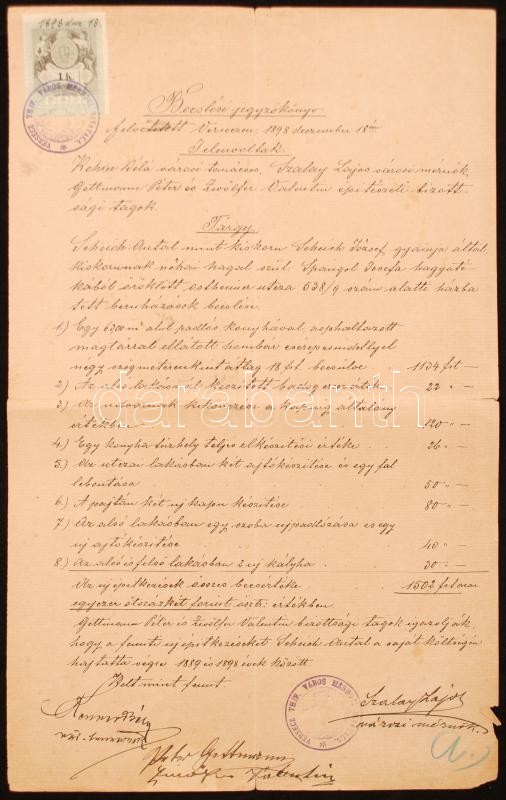 1898 dec. 18.
1 K
VERSECZ THJF. VÁROS MÉRNÖKI HIVATALA
Becslési jegyzőkönyv
felvétetett Verseczen, 1898 deczember 18án
Jelenvoltak
Béla városi tanácsos, Szalay Lajos városi mérnök,
Gettmann Péter és Zwölfer Valentin építészeti bizott-
sági tagok
Tárgy
Scheich Antal mint kiskorú Scheich József gyámja által,
kiskorúnak néhai szül. Spangol Josefa hagyaté-
kából öröklött utcza 538/9 szám alatti házba
tett beruházások becslése.
1) Egy 63 m² alul padlós konyhával, asphaltozott
magtárral ellátott hombár cserépzsindellyel
négyszögmeterenként átlag 18 frt. becsülve 1134 frt —
2) Az alsó lakásnál készített értéke 22 " —
3) Az udvarnak kikövezése átalány
értékben 120 " —
4) Egy konyha tűzhely teljes elkészítési értéke 26 " —
5) Az utczai lakásban két ajtó készítése és egy fal
lebontása 50 " —
6) A pajtán két új kapu készítése 80 " —
7) Az alsó lakásban egy szoba új padlózása és egy
új ajtó készítése 40 " —
8) Az alsó és felső lakásban 2 új kályha 30 " —
Az új építkezések összes becsértéke 1502 frt
egyezer ötszázkét forint értékben
Gettmann Péter és Zwölfer Valentin bizottsági tagok igazolják,
hogy a fenti új építkezéseket Scheich Antal a saját költségén
hajtatta végre 1889 és 1898 évek között
Kelt mint fent
Szalay Lajos
városi mérnök
VERSECZ THJF. VÁROS MÉRNÖKI HIVATALA
Peter Gettmann
Zwölfer Valentin
darabanth